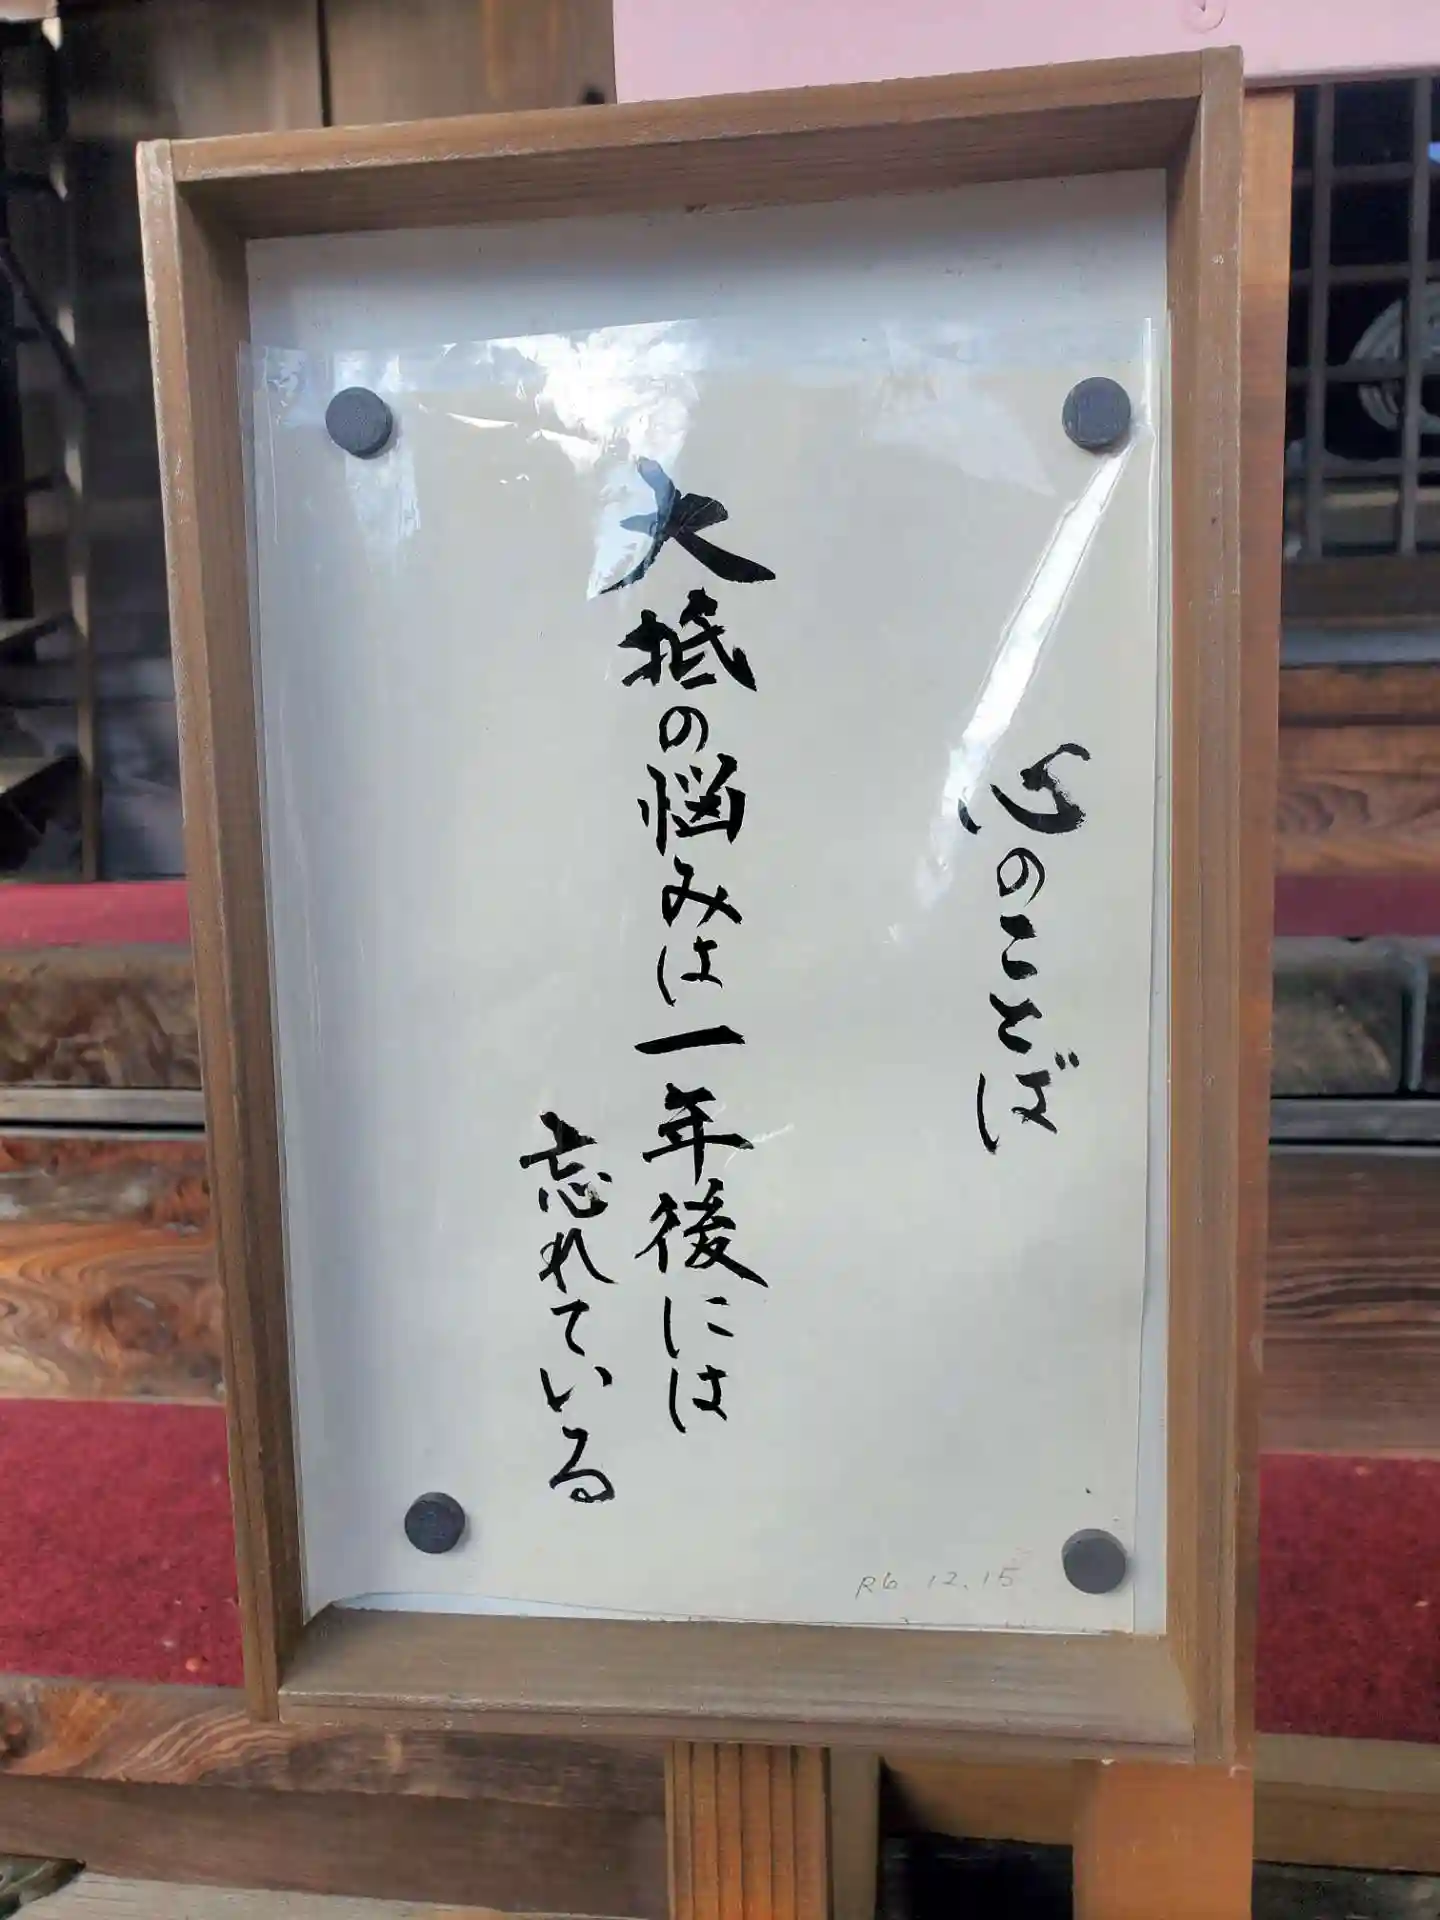 心のことば
大抵の悩みは一年後には
忘れている
R6 12.15